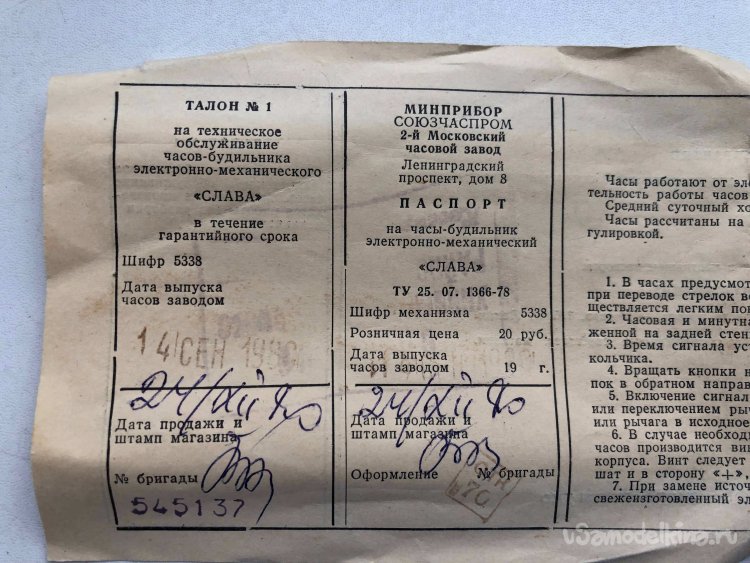 ТАЛОН № 1
на техническое
обслуживание
часов-будильника
электронно-механического
«СЛАВА»
в течение
гарантийного срока
Шифр 5338
Дата выпуска
часов заводом
14 СЕН 1980
24/XII 80
Дата продажи и
штамп магазина
№ бригады
545137
МИНПРИБОР
СОЮЗЧАСПРОМ
2-й Московский
часовой завод
Ленинградский
проспект, дом 8
ПАСПОРТ
на часы-будильник
электронно-механический
«СЛАВА»
ТУ 25. 07. 1366-78
Шифр механизма 5338
Розничная цена 20 руб.
Дата выпуска
часов заводом 19 г.
24/XII 80
Дата продажи и
штамп магазина
Оформление № бригады
70
Часы работают от эле
тельность работы часов
Средний суточный хо
Часы рассчитаны на
гулировкой.
1. В часах предусмот
при переводе стрелок во
ществляется легким пов
2. Часовая и минутна
женной на задней стен
3. Время сигнала уст
кольчика.
4. Вращать кнопки н
пок в обратном направ
5. Включение сигнал
или переключением рыч
или рычага в исходное
6. В случае необходи
часов производится вин
корпуса. Винт следует
шат и в сторону «+»,
7. При замене источ
свежеизготовленный эл
uSamodelkina.ru